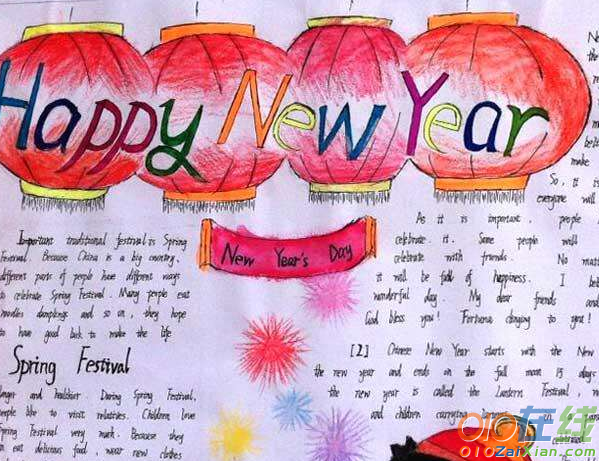 Happy New Year
Important traditional festival is Spring
Festival. Because China is a big country,
different parts of people have different ways
to celebrate Spring Festival. Many people eat
noodles dumplings and so on, they hope
to have good back to make the life
Spring Festival
longer and healthier During Spring Festival,
people like to visit relatives. Children love
Spring Festival very mark. Because they
eat delicious food, wear new clothes
New Year's Day
make
So, it is
everyone will
As it is important, people
celebrate it. Some people will
celebrate with friends. No matt
it will be full of happiness. I beli
wonderful day. My dear friends and
God bless you! Fortune clinging to you!
[2] Chinese New Year starts with the New
the new year and ends on the full moon 15 days
the new year is called the Lantern Festival
and children carrying
在线
010ZaiXian.com